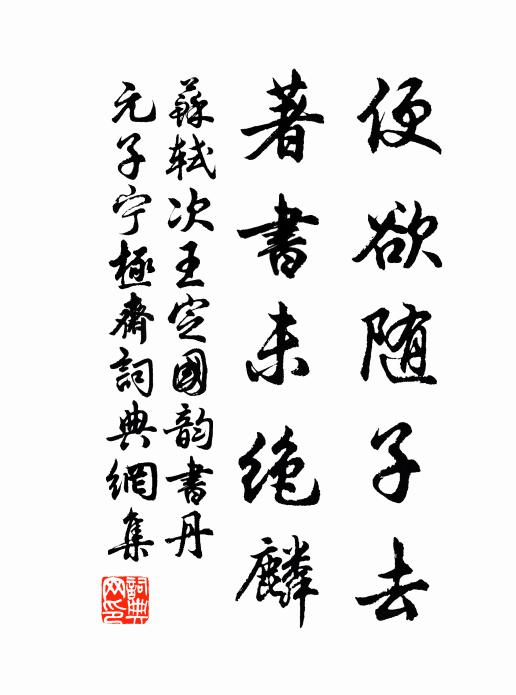 便欲随子去
著書未绝麟
蘇軾次王定國韵書丹
元子宁極齋詞典網集
詞典
网印